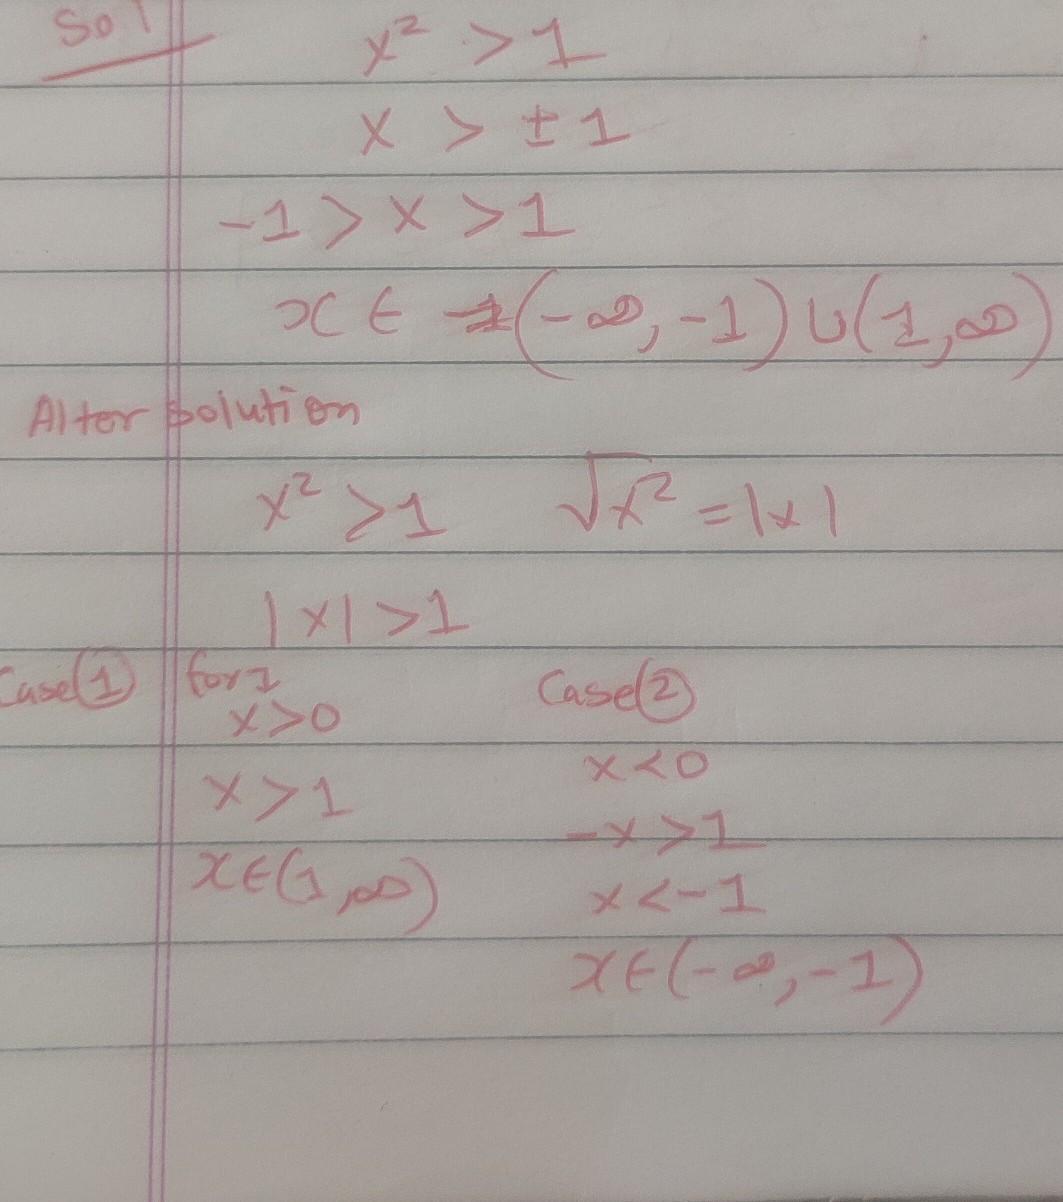 Sol
x² > 1
x > ± 1
-1 > x > 1
x ∈ (-∞, -1) ∪ (1, ∞)
Alter solution
x² > 1 √x² = |x|
|x| > 1
Case ① for x Case ②
x > 0
x < 0
x > 1
-x > 1
x ∈ (1, ∞)
x < -1
x ∈ (-∞, -1)